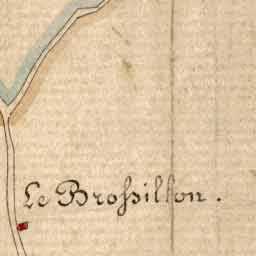 Le Broſsillon.